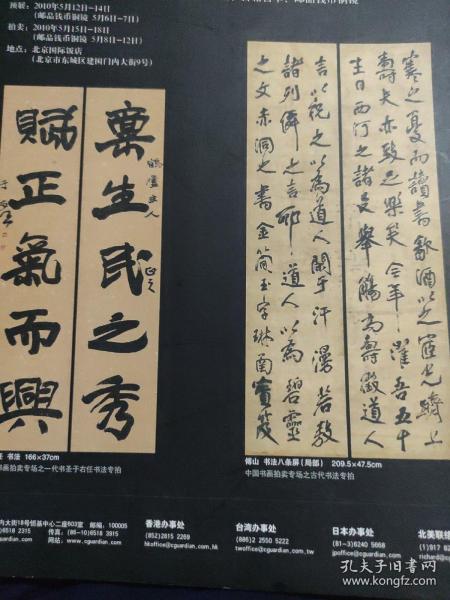 预展：2010年5月12日-14日
（邮品钱币铜镜 5月6日-7日）
拍卖：2010年5月15日-18日
（邮品钱币铜镜 5月8日-12日）
地点：北京国际饭店
（北京市东城区建国门内大街9号）
禀生民之秀
鹤庐主人
正之
赋正氣而興
寒之夏而讀書飲酒以之
壽夫亦致足樂矣今年 吾五十
生日西河之諸友舉觞為壽徵道人
言以祝之以為道人閑于汗漫若教
諸列僊之言耶道人以為碧靈
之文赤洞之書金简玉字琳函寶
任 书法 166×37cm
书画拍卖专场之一代书圣于右任书法专拍
傅山 书法八条屏（局部） 209.5×47.5cm
中国书画拍卖专场之古代书法专拍
内大街18号恒基中心二座603室 邮编：100005
6518 2315 传真：(86-10)6518 3915
网站：www.cguardian.com
香港办事处
(852)2815 2269
hkoffice@cguardian.com.hk
台湾办事处
(886)2 2550 5222
twoffice@cguardian.com
日本办事处
(81-3)6240 5668
jpoffice@cguardian.com
北美联络
(1)917 8
richard@c
孔夫子旧书网